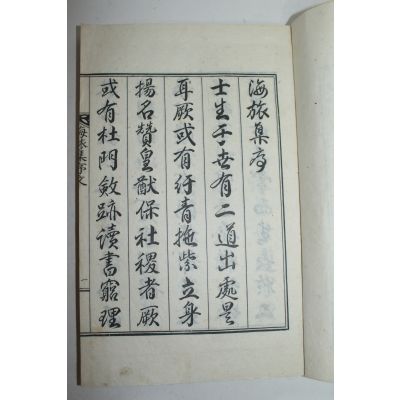 海旅集序
士生于世有二道出處是
耳厥或有紆青拖紫立身
揚名贊皇猷保社稷者厥
或有杜門斂跡讀書窮理
海旅集序文
一